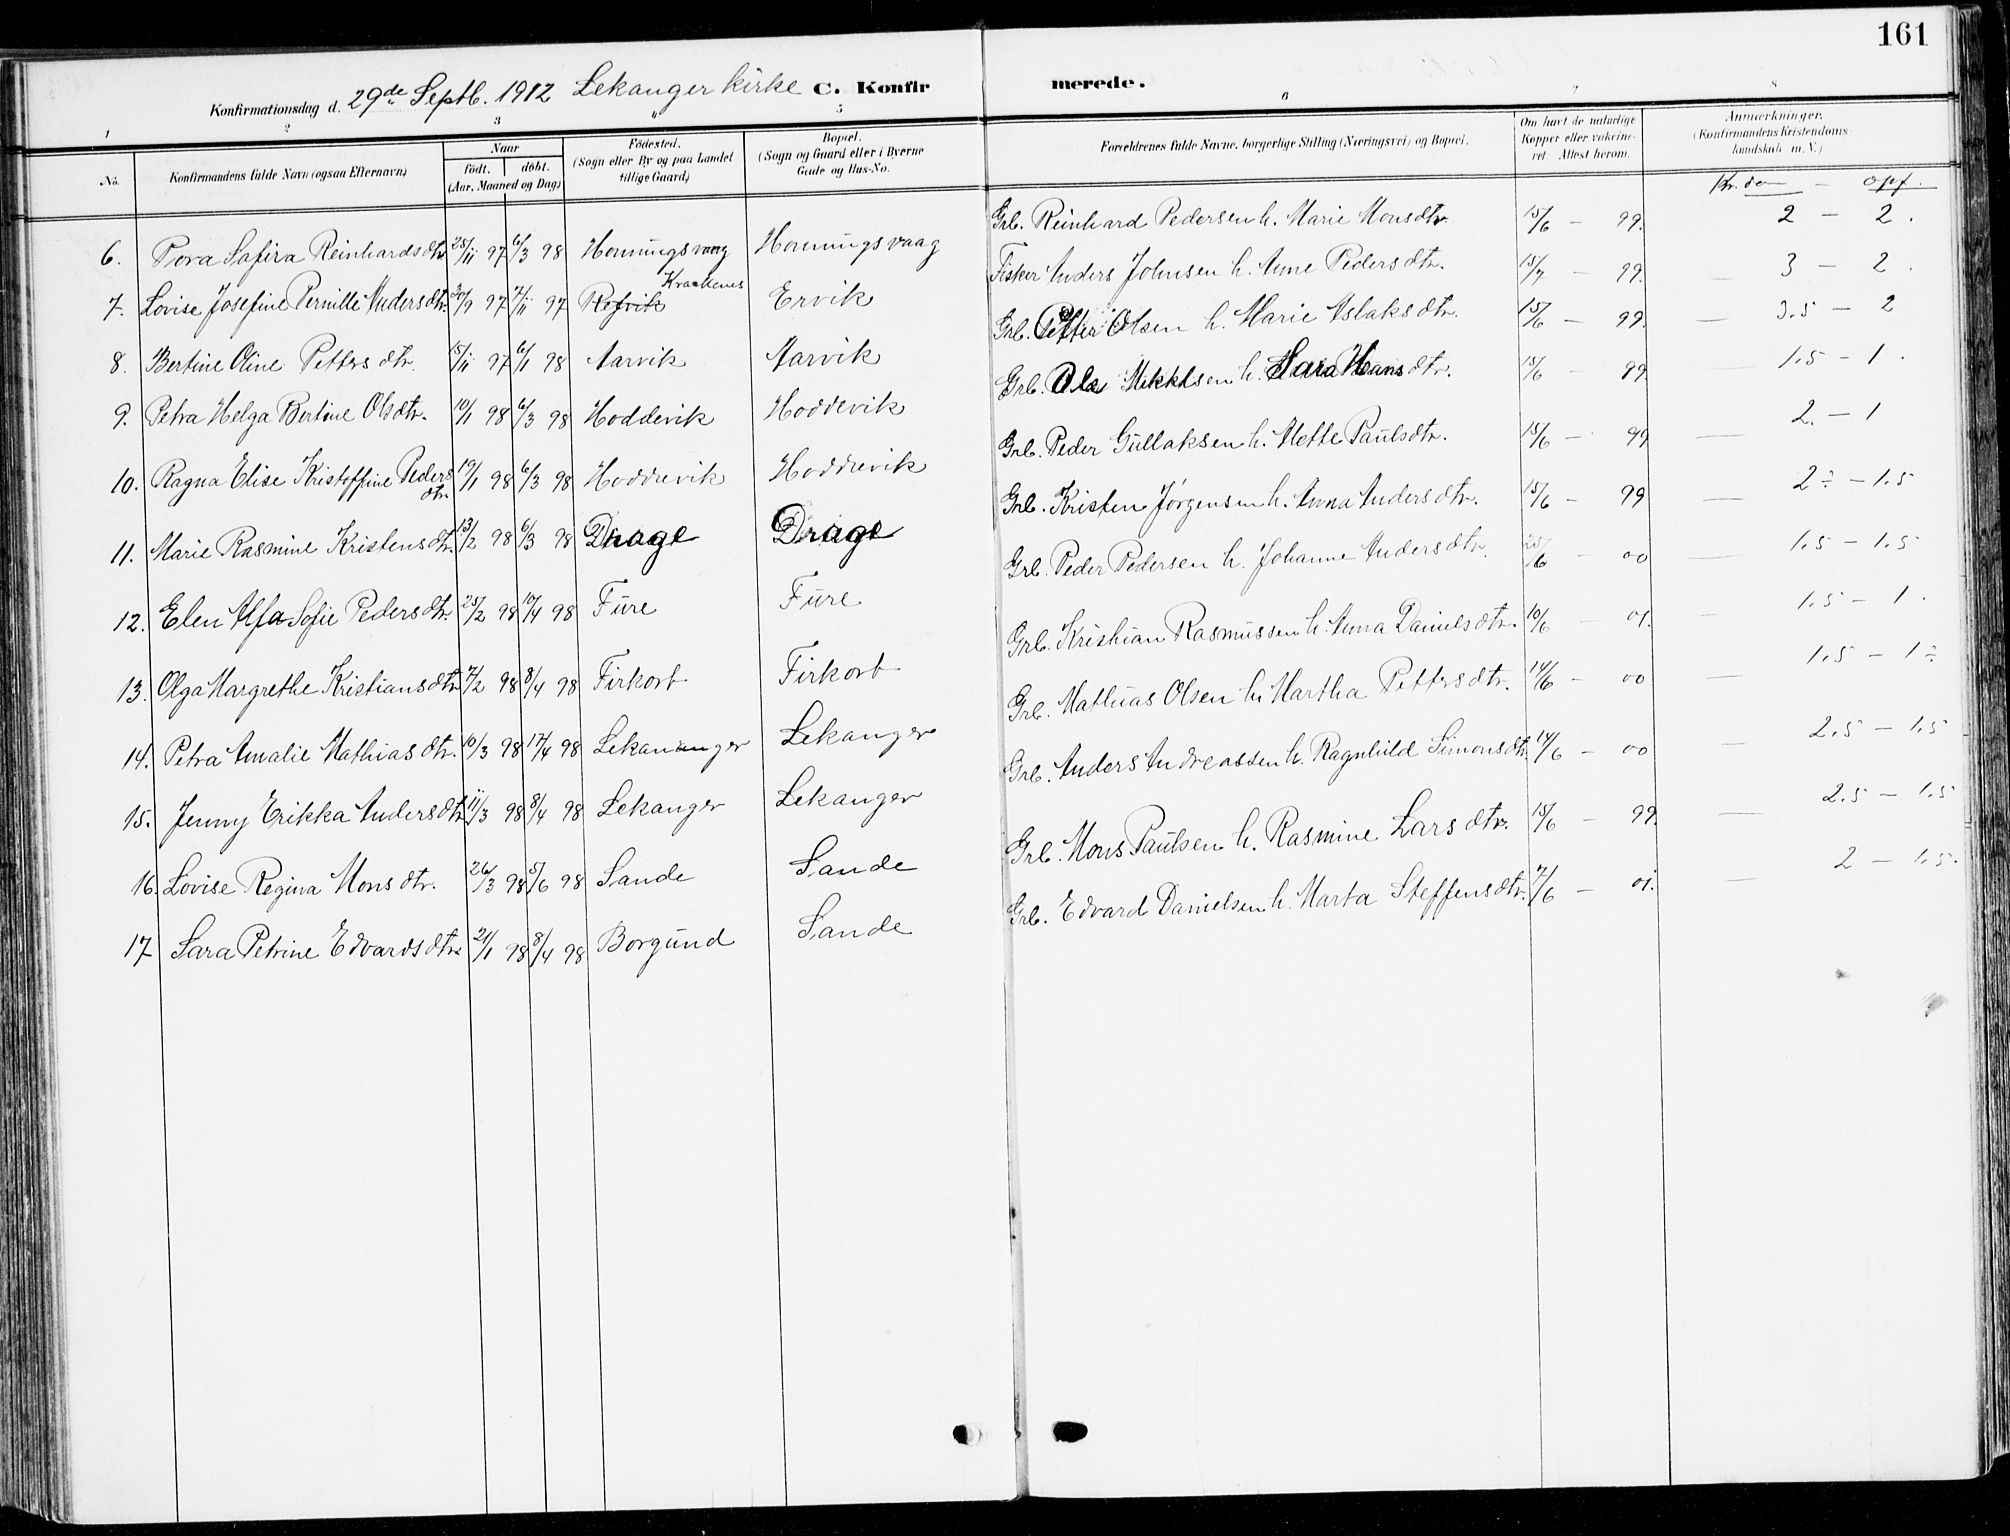 161
Konfirmationsdag d. 29de Septb. 1912 Lekanger kirke C. Konfirmerede.
1 2 3 4 5 6 7 8
No. Konfirmandens fulde Navn (ogsaa Efternavn) Naar født. døbt. (Aar, Maaned og Dag) Fødested. (Sogn eller By og paa Landet tillige Gaard) Bopæl. (Sogn og Gaard eller i Byerne Gade og Hus-No. Forældrenes fulde Navne, borgerlige Stilling (Næringsvei) og Bopæl. Om havt de naturlige Kopper eller vakcineret Attest herom. Anmærkninger. (Konfirmandens Kristendomskundskab m. V.)
Kr.dom — opf.
6. Tora Safira Reinhardsdtr. 25/11 97 6/3 98 Honningsvaag Honningsvaag Grb. Reinhard Pedersen h. Marie Monsdtr. 15/6 — 99. 2 — 2.
7. Lovise Josefine Pernille Andersdtr. 30/9 97 7/11 97 Refvik Kraakenes Ervik Fisker Anders Johnsen h. Anne Pedersdtr. 15/7 — 99. — 3 — 2.
8. Bertine Oline Pettersdtr. 15/11 97 6/1 98 Aarvik Aarvik Grb. Petter Olsen h. Marie Aslaksdtr. 15/6 — 99. — 3.5 — 2
9. Petra Helga Bertine Olsdtr. 10/1 98 6/3 98 Hoddevik Hoddevik Grb. Ole Mikkelsen h. Sara Hansdtr. 15/6 — 99. — 1.5 — 1.
10. Ragna Elise Kristoffine Pedersdtr. 19/1 98 6/3 98 Hoddevik Hoddevik Grb. Peder Gullaksen h. Mette Paulsdtr. 15/6 — 99 — 2. — 1
11. Marie Rasmine Kristensdtr. 13/2 98 6/3 98 Drage Drage Grb. Kristen Jørgensen h. Anna Andersdtr. 15/6 — 99 — 2÷ — 1.5
12. Elen Alfa Sofie Pedersdtr. 25/2 98 17/4 98 Fure Fure Grb. Peder Pedersen h. Johanne Andersdtr. 25/6 — 00 — 1.5 — 1.5
13. Olga Margrethe Kristiansdtr. 7/2 98 8/4 98 Tirkort Tirkort Grb. Kristian Rasmussen h. Anna Danielsdtr. 10/6 — 01. — 1.5 — 1.
14. Petra Amalie Mathiasdtr. 10/3 98 17/4 98 Lekananger Lekanger Grb. Mathias Olsen h. Martha Pettersdtr. 14/6 — 00 — 1.5 — 1÷
15. Jenny Erikka Andersdtr. 11/3 98 8/4 98 Lekanger Lekanger Grb. Anders Andreassen h. Ragnhild Simonsdtr. 14/6 — 00 — 2.5 — 1.5
16. Lovise Regina Monsdtr. 26/3 98 5/6 98 Sande Sande Grb. Mons Paulsen h. Rasmine Larsdtr. 15/6 — 99. — 2.5 — 1.5
17 Sara Petrine Edvardsdtr. 21/1 98 8/4 98 Borgund Sande Grb. Edvard Danielsen h. Marta Steffensdtr. 7/6 — 01. — 2 — 1.5.